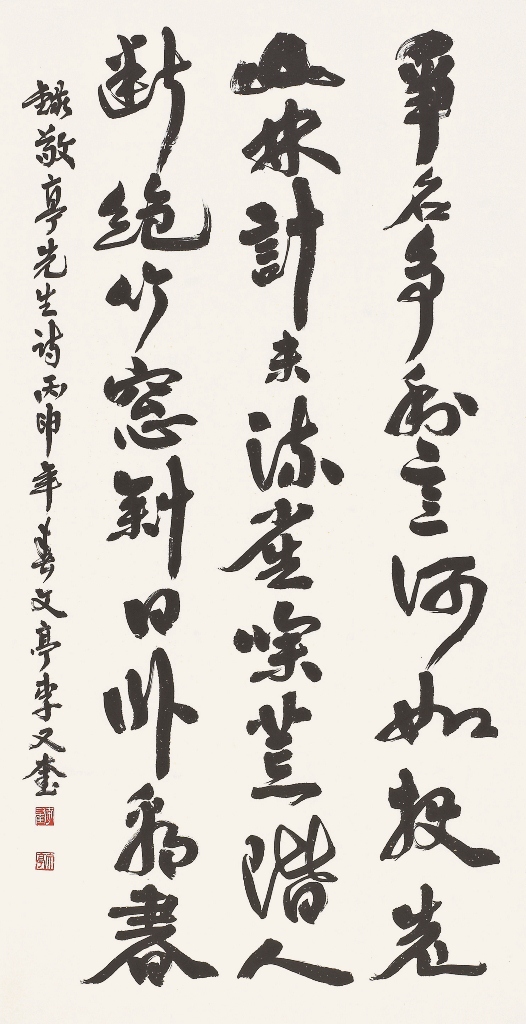 爭名争利意何如投老
山林計未疏雀噪荒階人
斷絶竹窓斜日臥看書
錄敬亭先生詩丙申年春文亭李又奎